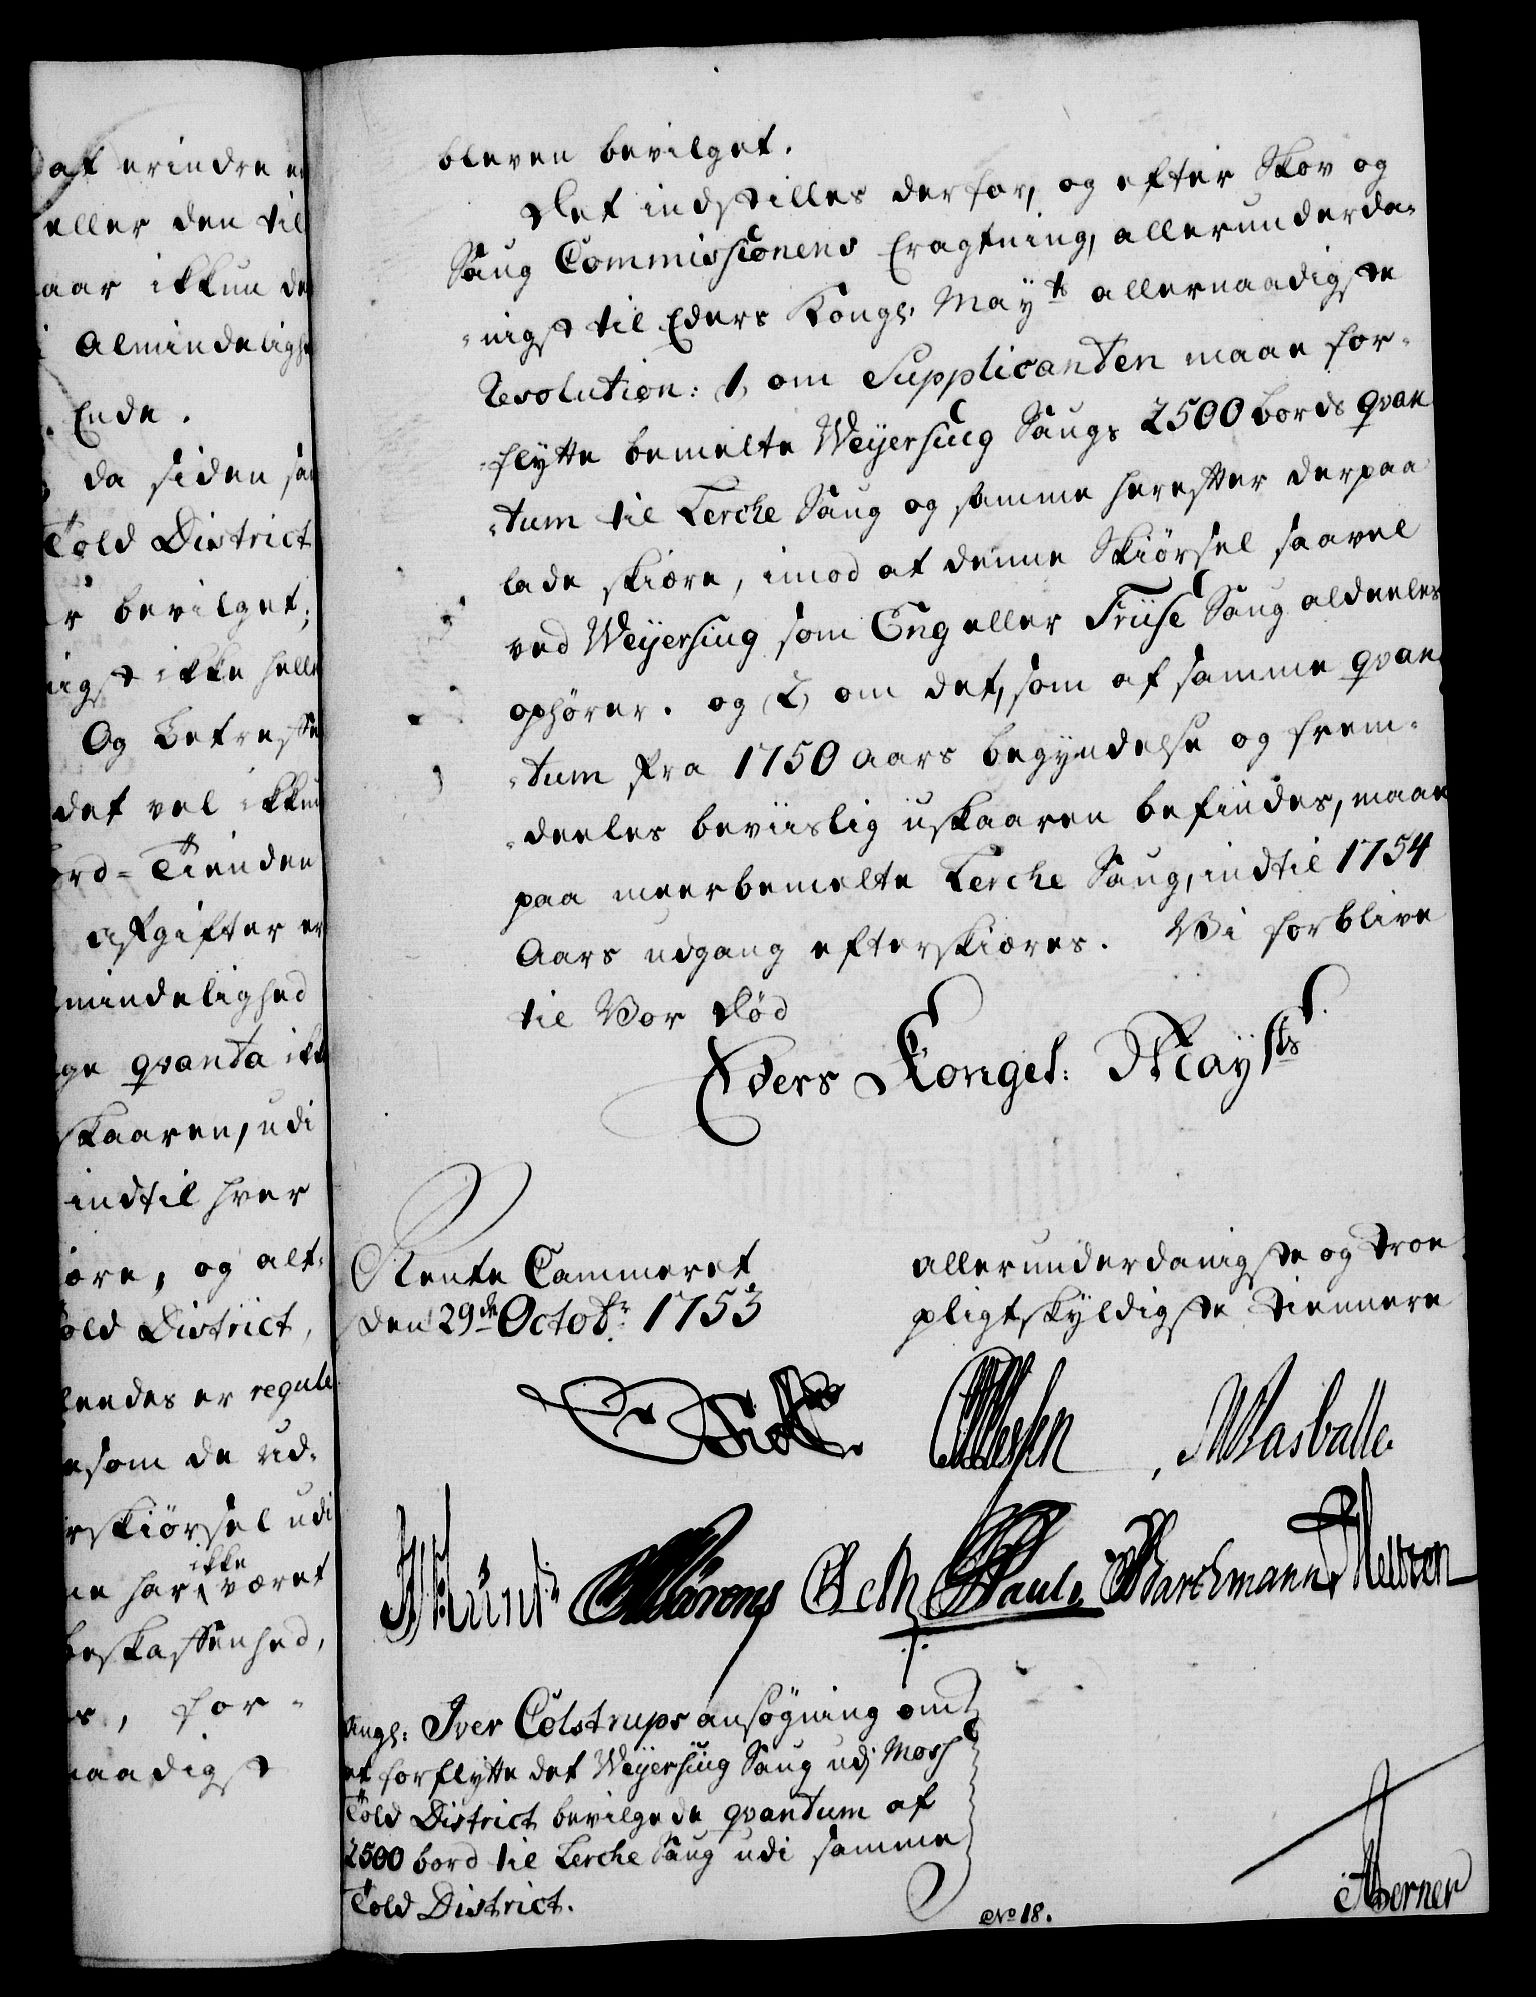 at erindre
eller den til
aar ikkun
Almindeligh
Ende.
da siden
Told District
bevilget;
ikke
Og
det vel ikkun
Tienden
afgifter er
mindelighed
qvanta
skaaren, udi
indtil hver
og alt-
District,
er regule
som de ud-
skiørsel udi
har ikke været
beskaffenhed,
for-
naadigst
bleven bevilget.
Det indstilles derfor, og efter Skov og
Saug Commissionens Eragtning, allerunderda-
-nigst til Eders Kongl. Mayts allernaadigste
Resolution: 1, om Supplicanten maae for-
-flytte bemelte Weyersiug Saugs 2500 bords qvan
-tum til Lerche Saug og samme herefter derpaa
lade skiære, imod at denne Skiørsel saavel
ved Weyersiug som Eng eller Friise Saug aldeeles
ophører. og 2, om det, som af samme qvan
-tum fra 1750 Aars begyndelse og frem-
-deeles beviislig uskaaren befindes, maae
paa meerbemelte Lerche Saug, indtil 1754
Aars udgang efterskiæres. Vi forblive
til Vor Død
Eders Kongel: Mayts
Rente Cammeret
den 29de Octobr: 1753
allerunderdanigste og troe
pligtskyldigste Tiennere
Barchmann
Angl: Iver Colstrups ansøgning om
at forflytte det Weyersiug Saug udj Moss
Told District bevilgede qvantum af
2500 bord til Lerche Saug udi samme
Told District.
No 18.
Berner